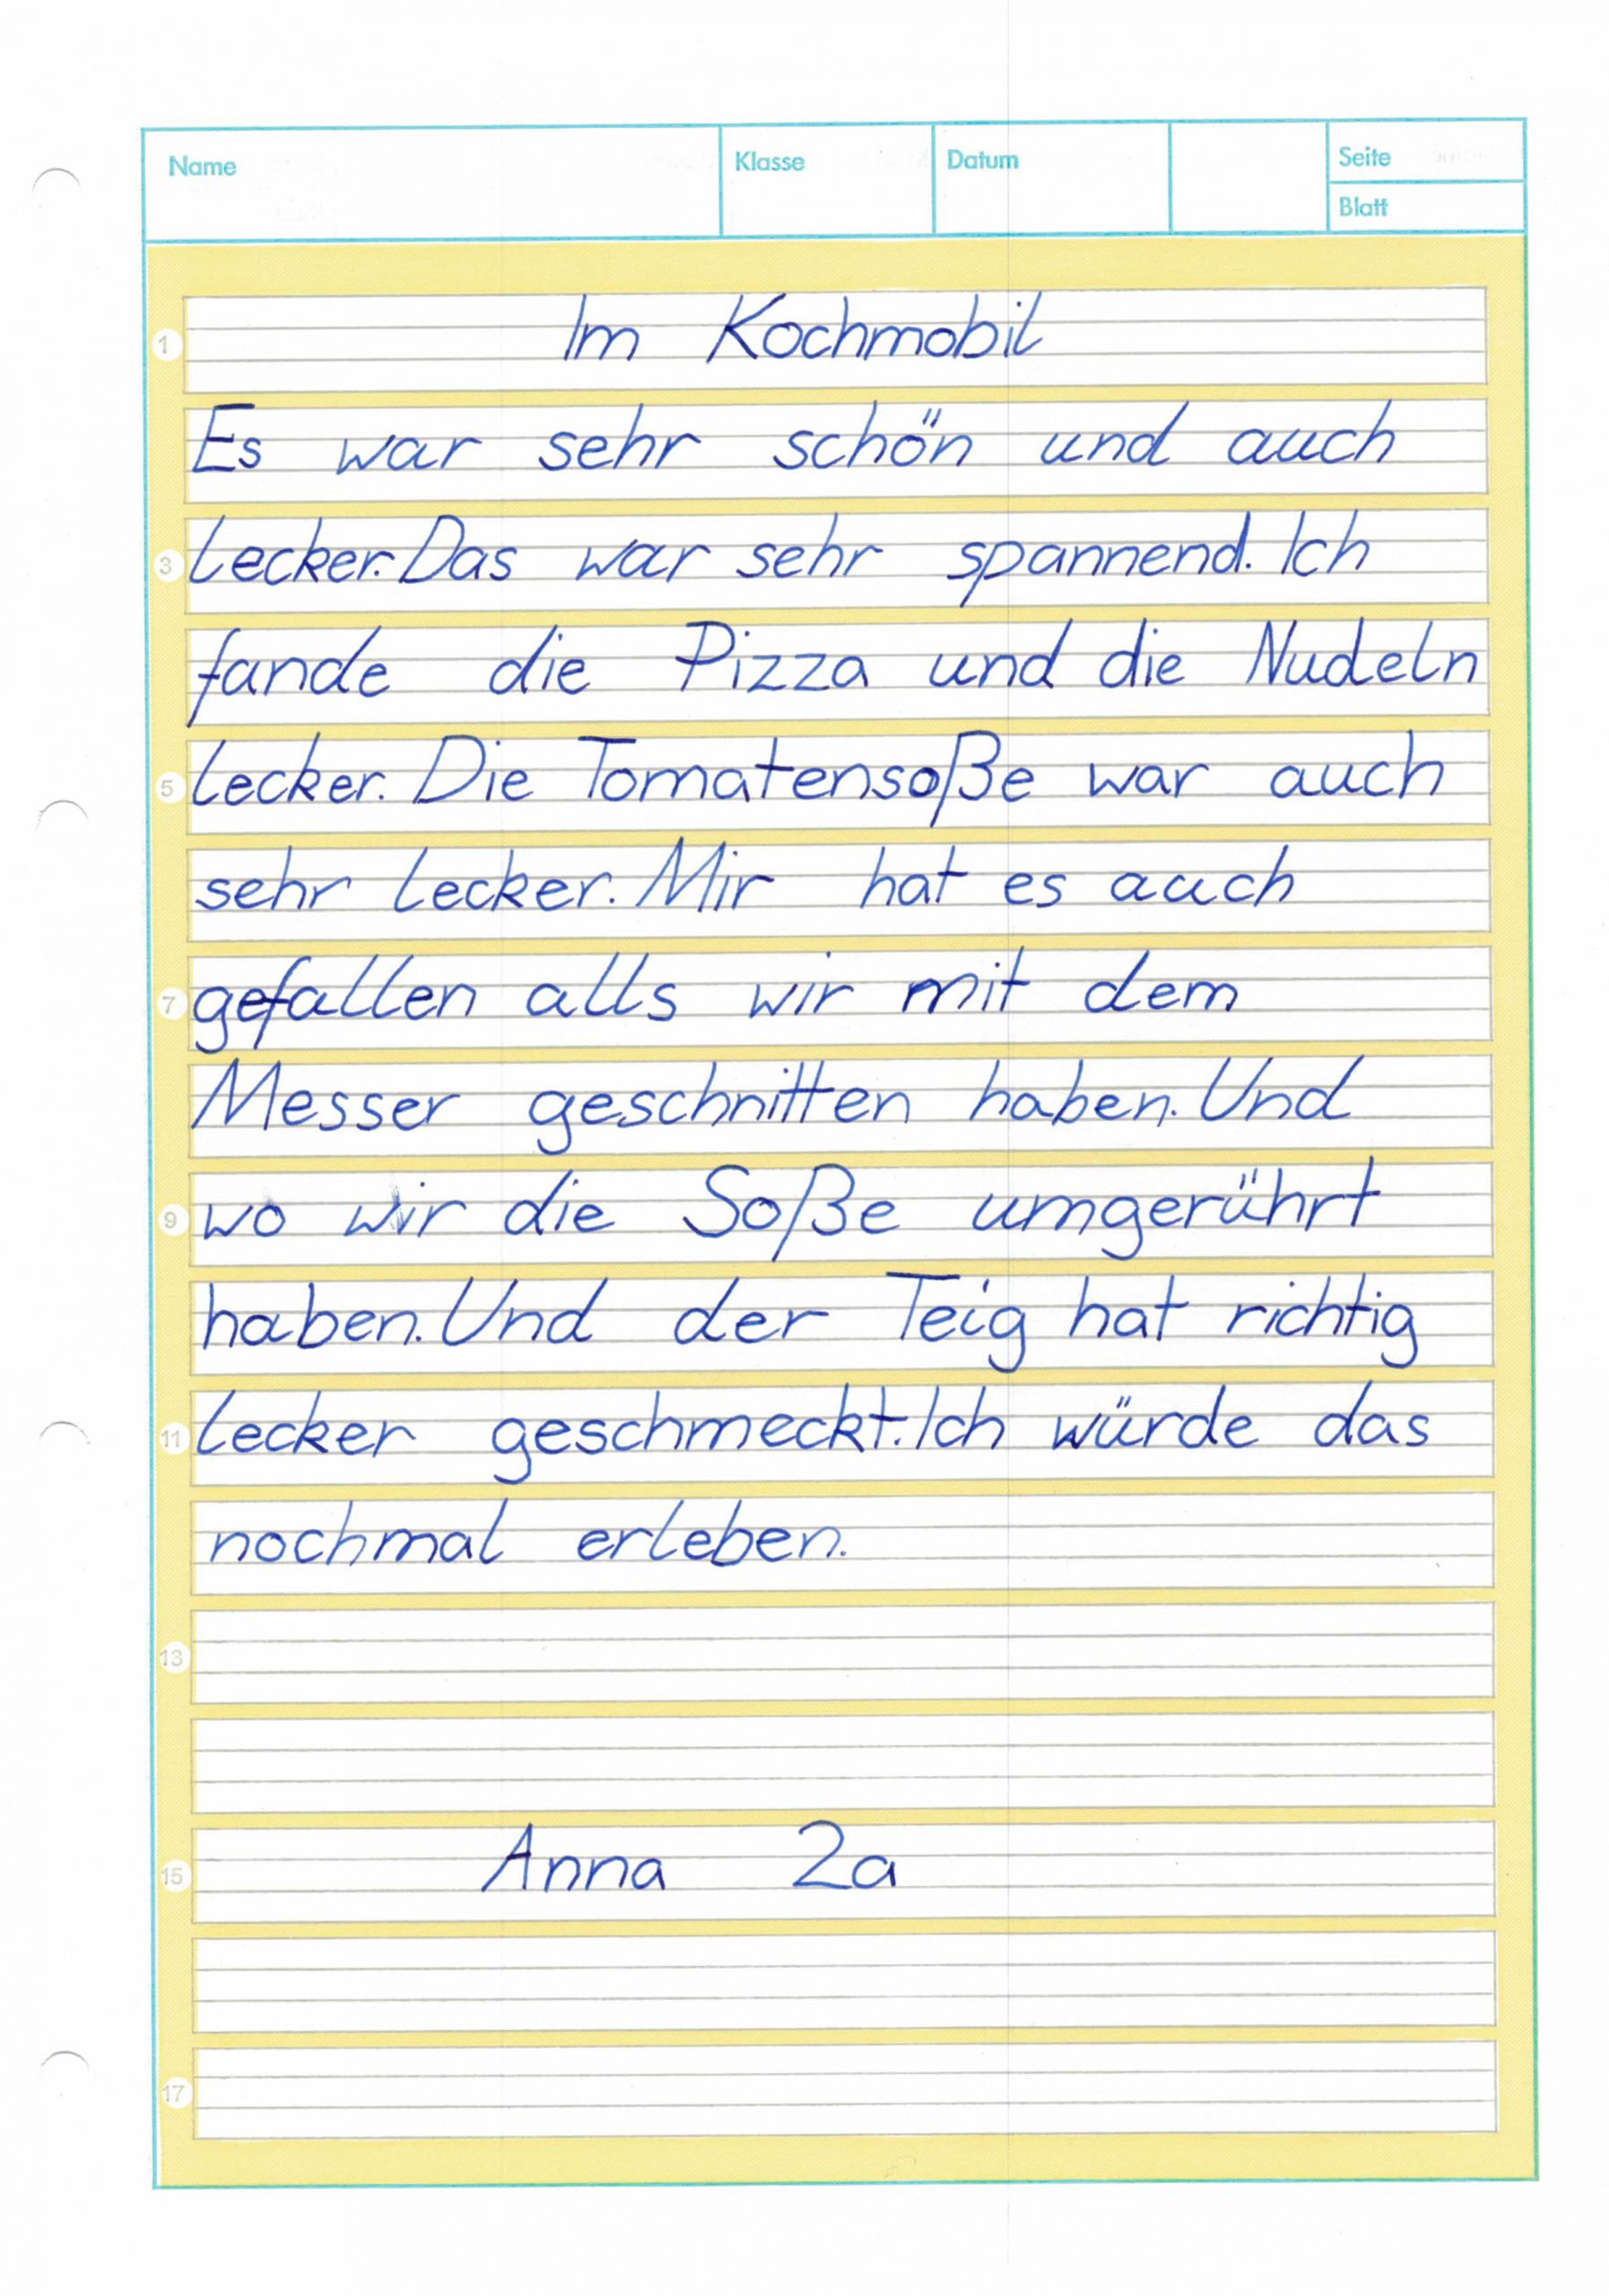 Name Klasse Datum Seite
Blatt
1 Im Kochmobil
Es war sehr schön und auch
3 lecker. Das war sehr spannend. Ich
fande die Pizza und die Nudeln
5 lecker. Die Tomatensoße war auch
sehr lecker. Mir hat es auch
7 gefallen alls wir mit dem
Messer geschnitten haben. Und
9 wo wir die Soße umgerührt
haben. Und der Teig hat richtig
11 lecker geschmeckt. Ich würde das
nochmal erleben.
13
15 Anna 2a
17